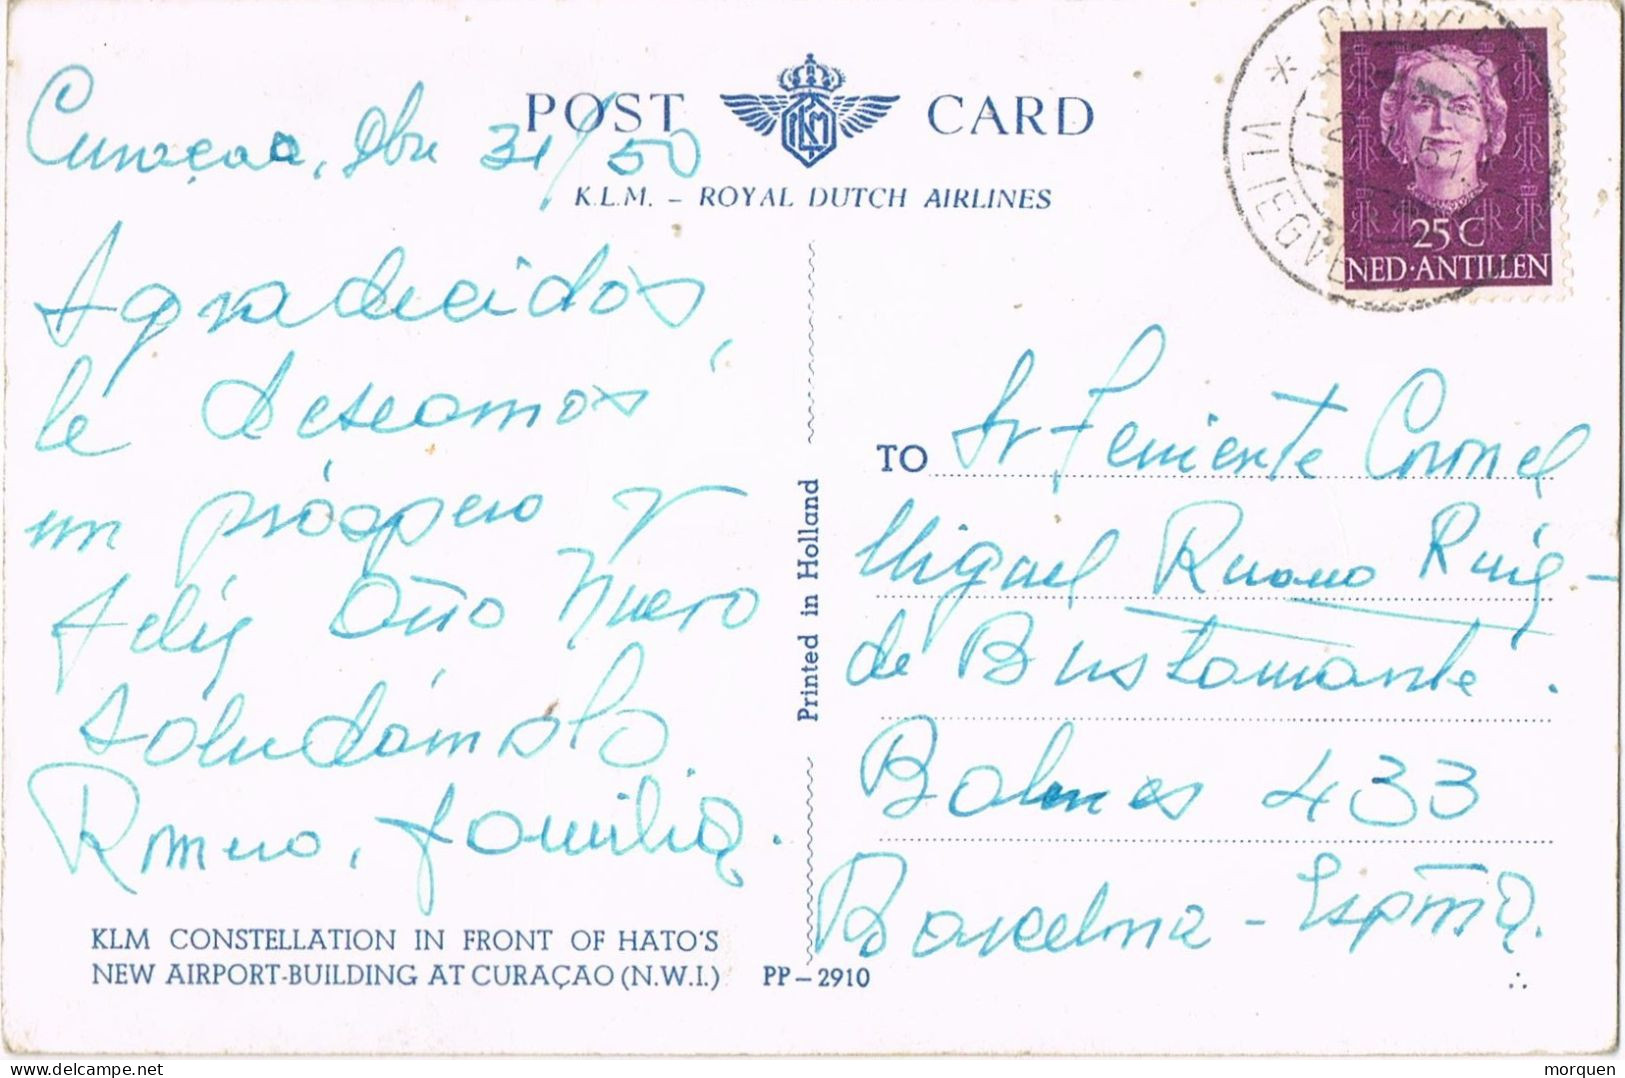 POST CARD
KLM
K.L.M. – ROYAL DUTCH AIRLINES
Curaçao, Dbre 31/50
Agradecidos,
le deseamos
un próspero y
feliz Año Nuevo
Saludándolo
Romero, familia.
KLM CONSTELLATION IN FRONT OF HATO'S
NEW AIRPORT-BUILDING AT CURAÇAO (N.W.I.)
PP–2910
Printed in Holland
25 C
NED·ANTILLEN
TO Sr Teniente Coronel
Miguel Ruano Ruiz-
de Bustamante.
Balmes 433
Barcelona - España.
delcampe.net
morquen